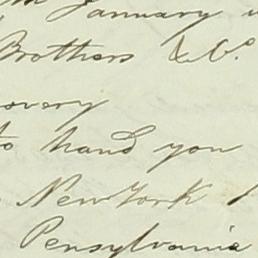 January
Brothers & Co.
overy
to hand you
New York
Pensylvania